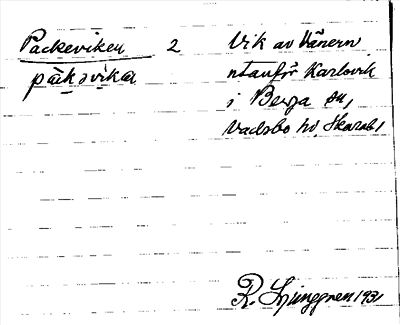 Packeviken 2 Vik av Vänern
påkɜvikɑ utanför Karlsvik
i Berga sn,
Vadsbo hd, Skarab.
R. Ljunggren 1931